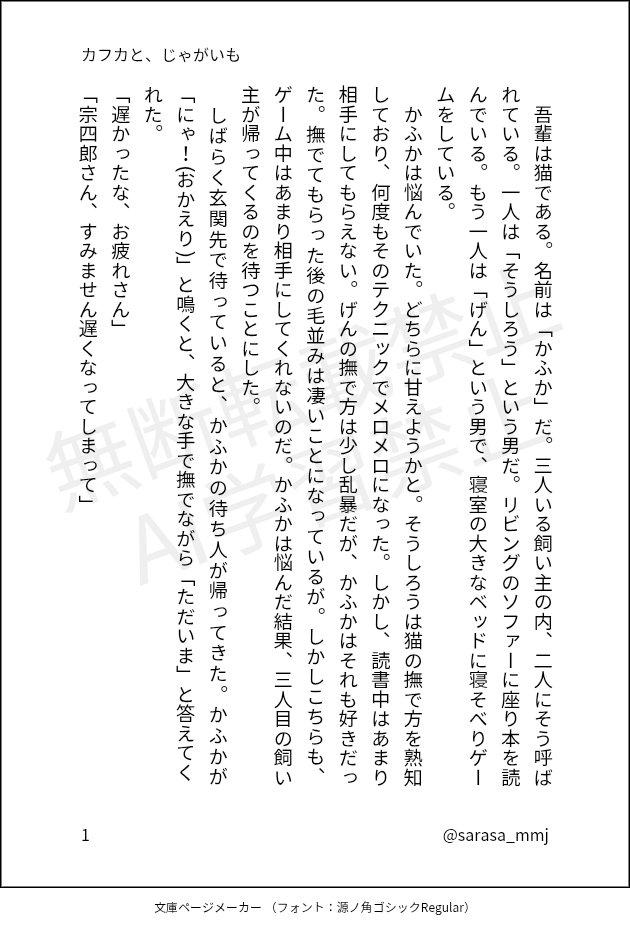 カフカと、じゃがいも
　吾輩は猫である。名前は「かふか」だ。三人いる飼い主の内、二人にそう呼ば
れている。一人は「そうしろう」という男だ。リビングのソファーに座り本を読
んでいる。もう一人は「げん」という男で、寝室の大きなベッドに寝そべりゲー
ムをしている。
　かふかは悩んでいた。どちらに甘えようかと。そうしろうは猫の撫で方を熟知
しており、何度もそのテクニックでメロメロになった。しかし、読書中はあまり
相手にしてもらえない。げんの撫で方は少し乱暴だが、かふかはそれも好きだっ
た。撫でてもらった後の毛並みは凄いことになっているが。しかしこちらも、
ゲーム中はあまり相手にしてくれないのだ。かふかは悩んだ結果、三人目の飼い
主が帰ってくるのを待つことにした。
　しばらく玄関先で待っていると、かふかの待ち人が帰ってきた。かふかが
「にゃ！(おかえり)」と鳴くと、大きな手で撫でながら「ただいま」と答えてく
れた。
「遅かったな、お疲れさん」
「宗四郎さん、すみません遅くなってしまって」
無断転載禁止
AI学習禁止
1
@sarasa_mmj
文庫ページメーカー （フォント：源ノ角ゴシックRegular）